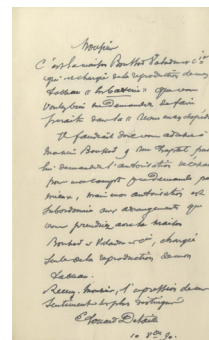 Monsieur
C'est la maison Boussod Valadon & Cie
qui est chargée de la reproduction de mon
tableau « les » que vous
voulez bien me demander de faire
paraître dans la « Revue
Il faudrait donc vous adresser à
Boussod, 9 rue Chaptal, pour
lui demander l'autorisation
pour mon compte
mieux, mais mon autorisation est
subordonnée aux arrangements que
vous prendrez avec la maison
Boussod & Valadon & Cie, chargée
seule de la reproduction de mon
tableau.
Recevez, Monsieur, l'expression de mes
sentiments les plus distingués
Edouard Detaille
10 90.